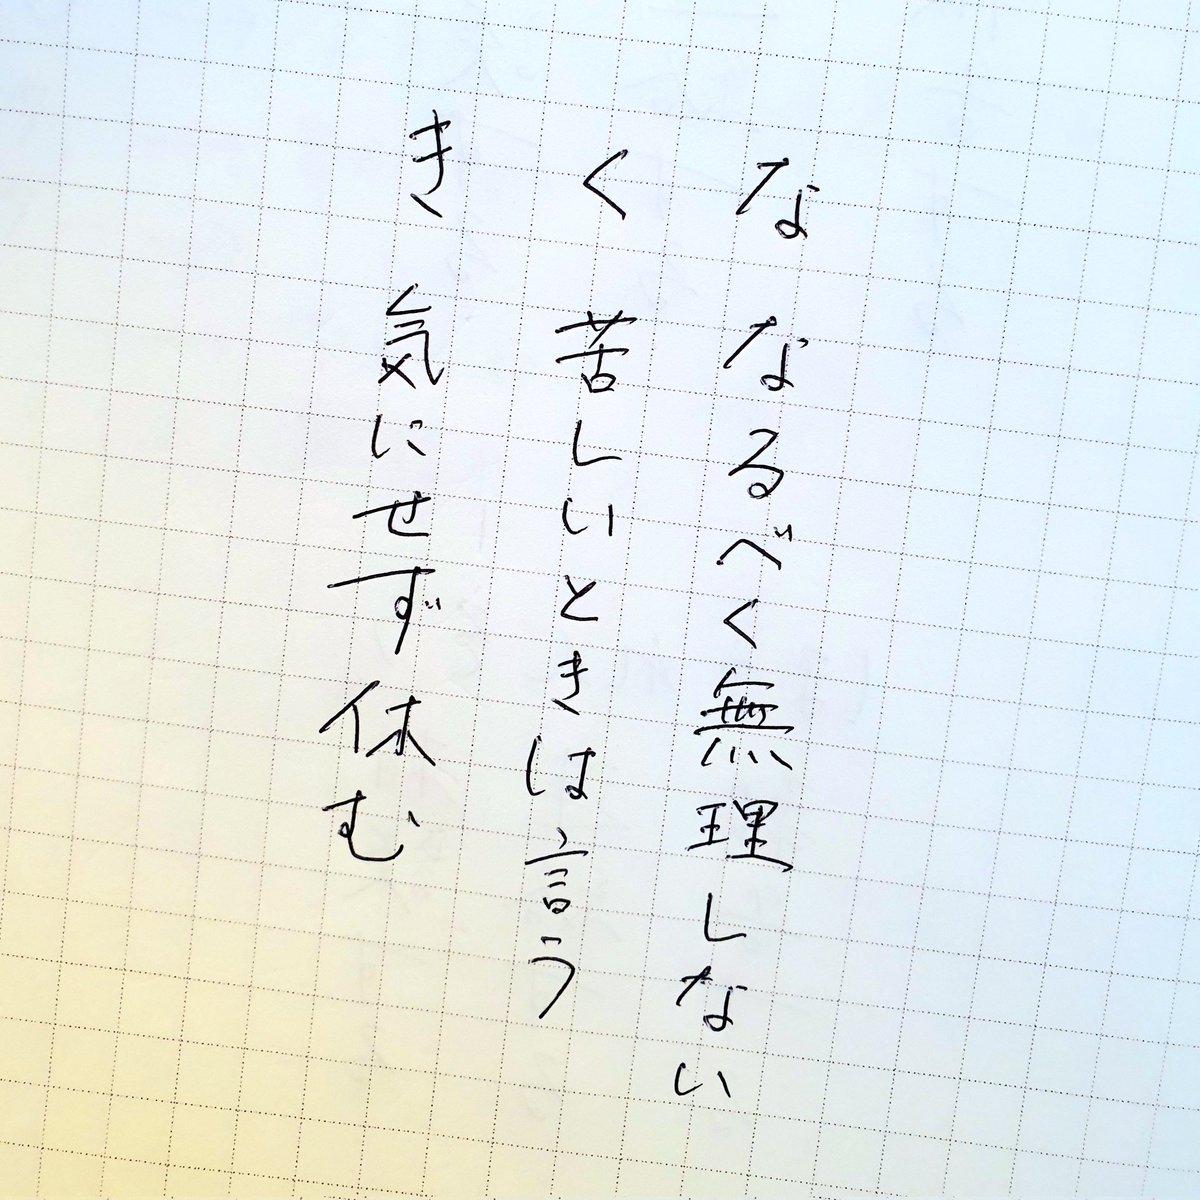 な なるべく無理しない
く 苦しいときは言う
き 気にせず休む